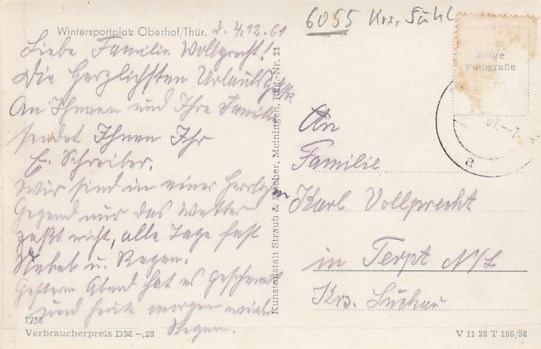 6055 Krs. Suhl
Wintersportplatz Oberhof/Thür. d. 4.12.61
Liebe Familie Vollprecht!
Die herzlichsten Urlaubsgrüße
An Ihnen und Ihre Familie
sendet Ihnen Ihr
E. Schreiber.
Wir sind in einer herrlichen
Gegend nur das Wetter
paßt nicht, alle Tage fast
Nebel u. Regen.
Gestern Abend hat es geschneit
und heute morgen wieder
Regen.
1238
Verbraucherpreis DM -,20
Kunstanstalt Straub & Fischer, Meiningen, Reg.-Nr. 23
Fotografie
a
An
Familie
Karl Vollprecht
in Terpt N/L
Krs. Luckau
V 11 28 T 166/58